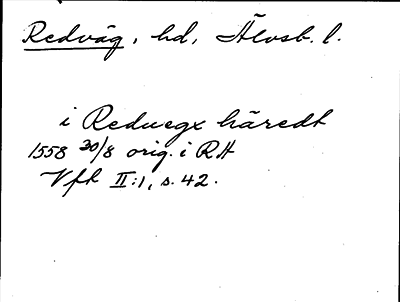 Redväg, hd, Älvsb. l.
i Reduegx häredt
1558 30/8 orig. i RA
Vfh II:1, s. 42.